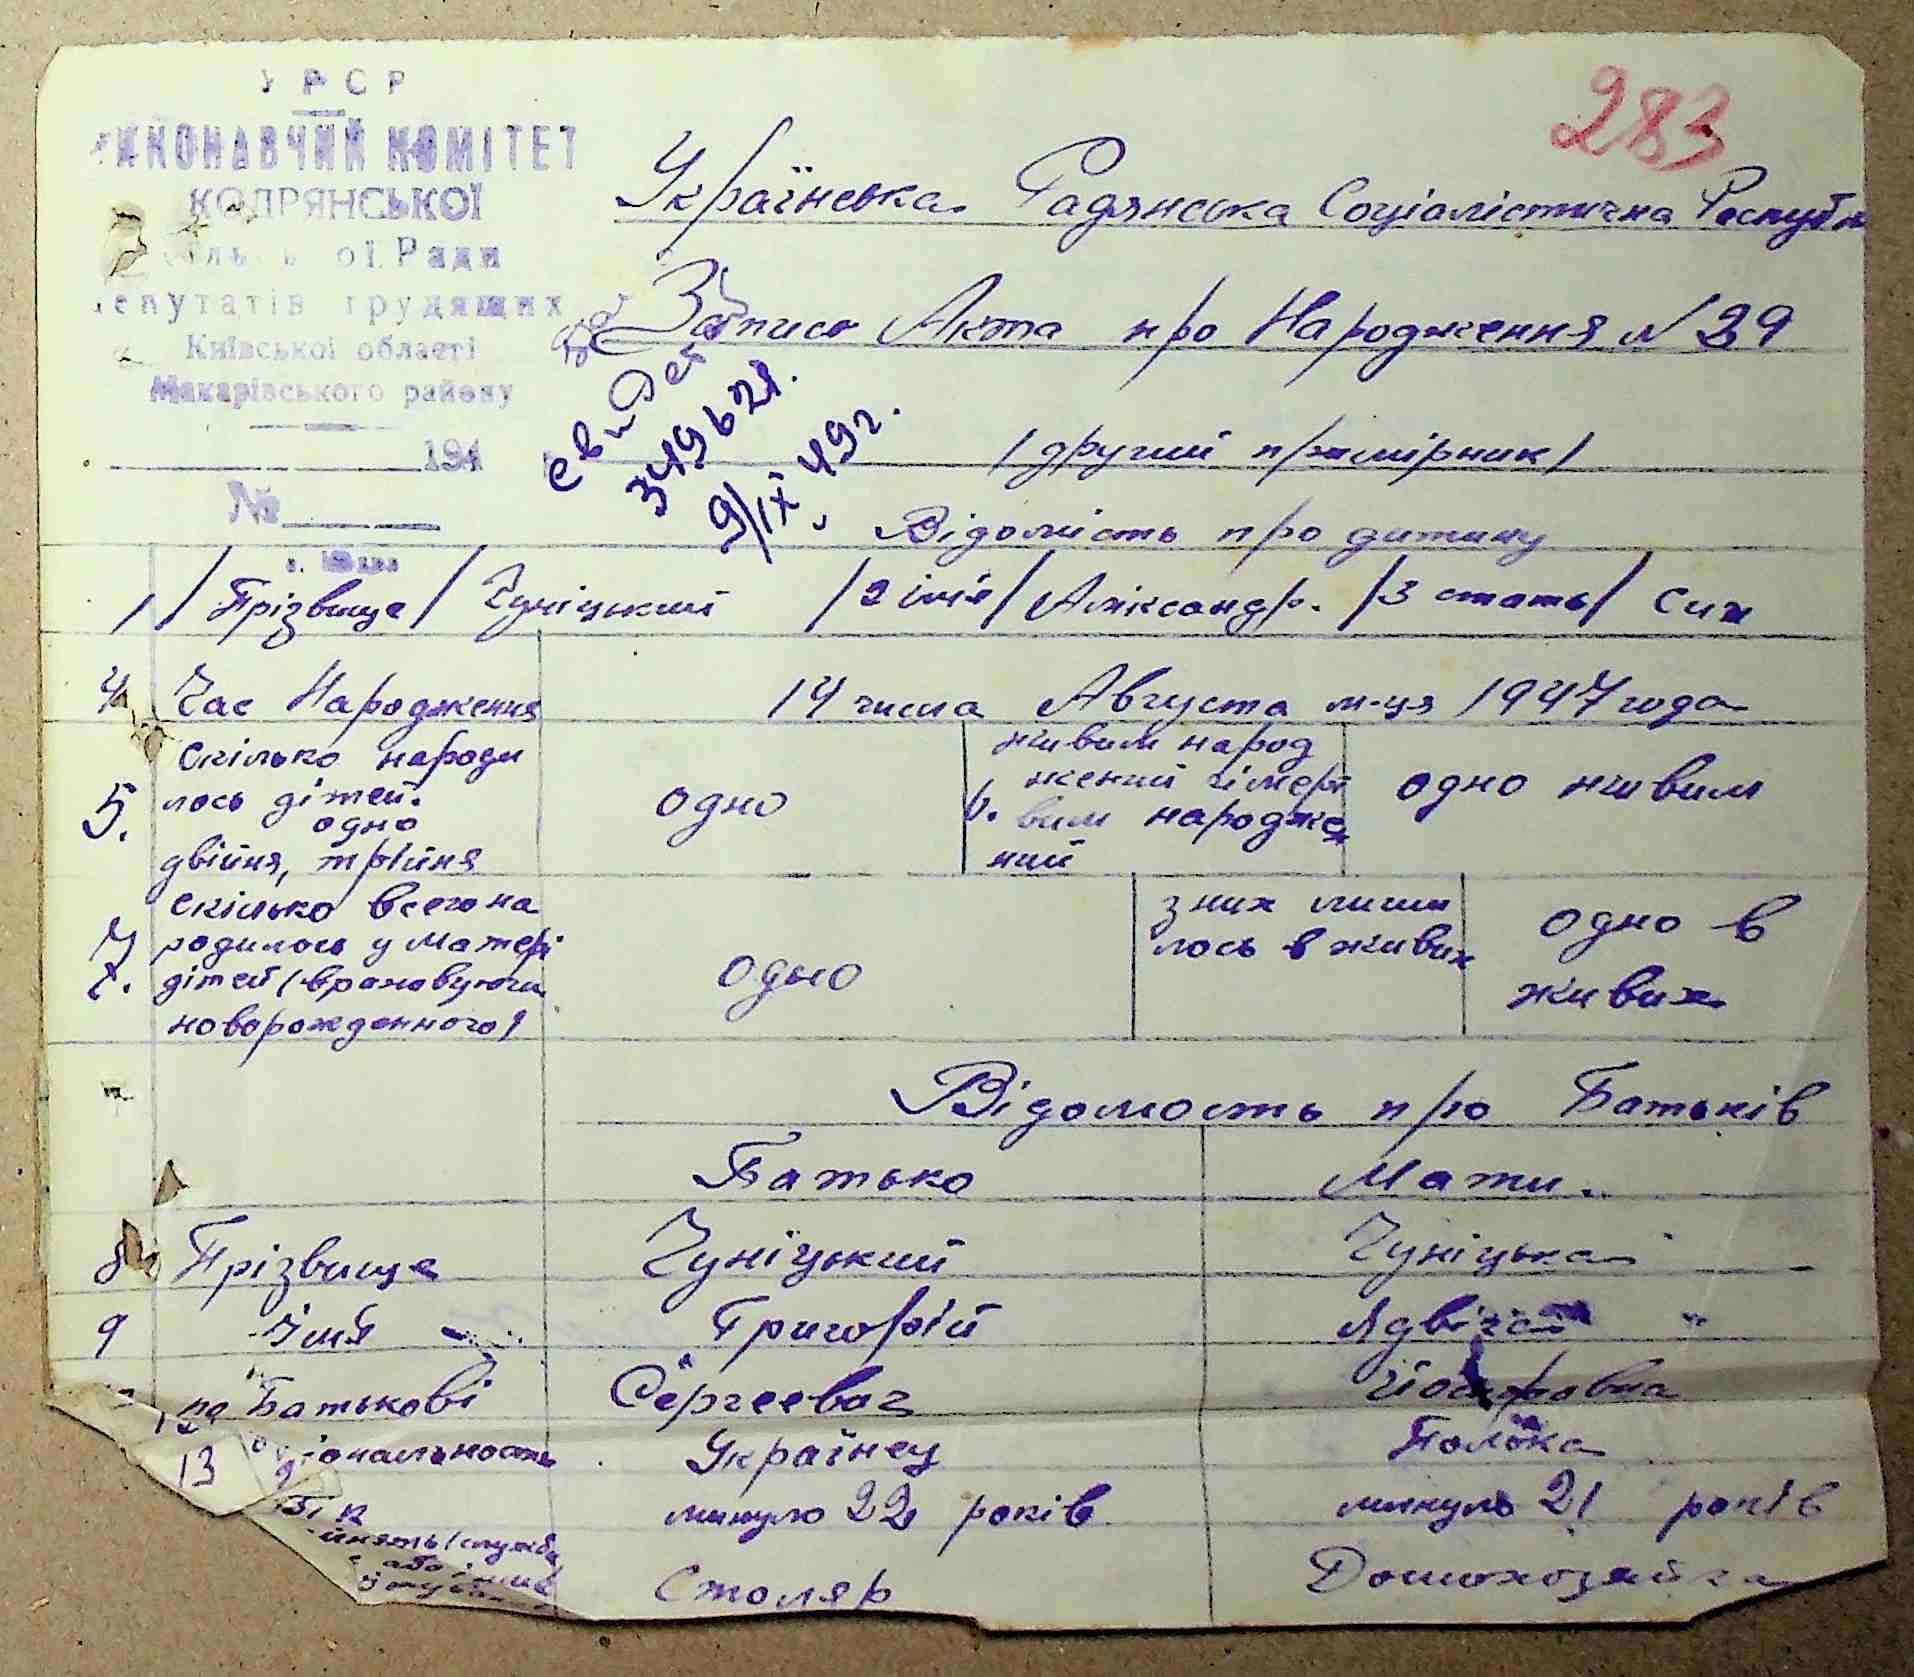 УРСР
ИКОНАВЧИЙ КОМІТЕТ
КОДРЯНСЬКОЇ
ільської Ради
депутатів трудящих
Київської області
Макарівського району
194
№
283
Українська Радянська Соціалістична Республи
Запись Акта про Народження N 29
свидет
9/IX 49 г.
/другий примірник/
Відомість про дитину
1/ Прізвище / Чуніцький / 2 імія / Аліксандр. / 3 стать / Син
4 Час Народження 14 числа Августа м-ця 1947 года
5. Скілько народи лось дітей. одно двійня, трійня одно 6. живим народ жений чімерт вим народже ний одно живим
7. Скілько всего на родилось у Матері дітей (враховуючи новорожденного) одно з них лиши лось в живих одно в живих
Відомость про Батьків
Батько Мати.
8 Прізвище Чуніцький Чуніцька
9 Імя Григорій Ядвіга
по Батькові Сергеевич
13 іональность Українец Полька
Вік минуло 22 років минуло 21 років
Столяр Домохозяйка